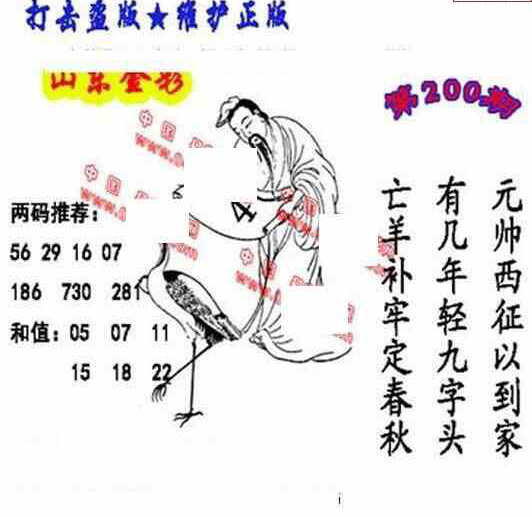 打击盗版★维护正版
山东金彩
第200期
两码推荐:
56 29 16 07
186 730 281
和值: 05 07 11
15 18 22
4
元帅西征以到家
有几年轻九字头
亡羊补牢定春秋